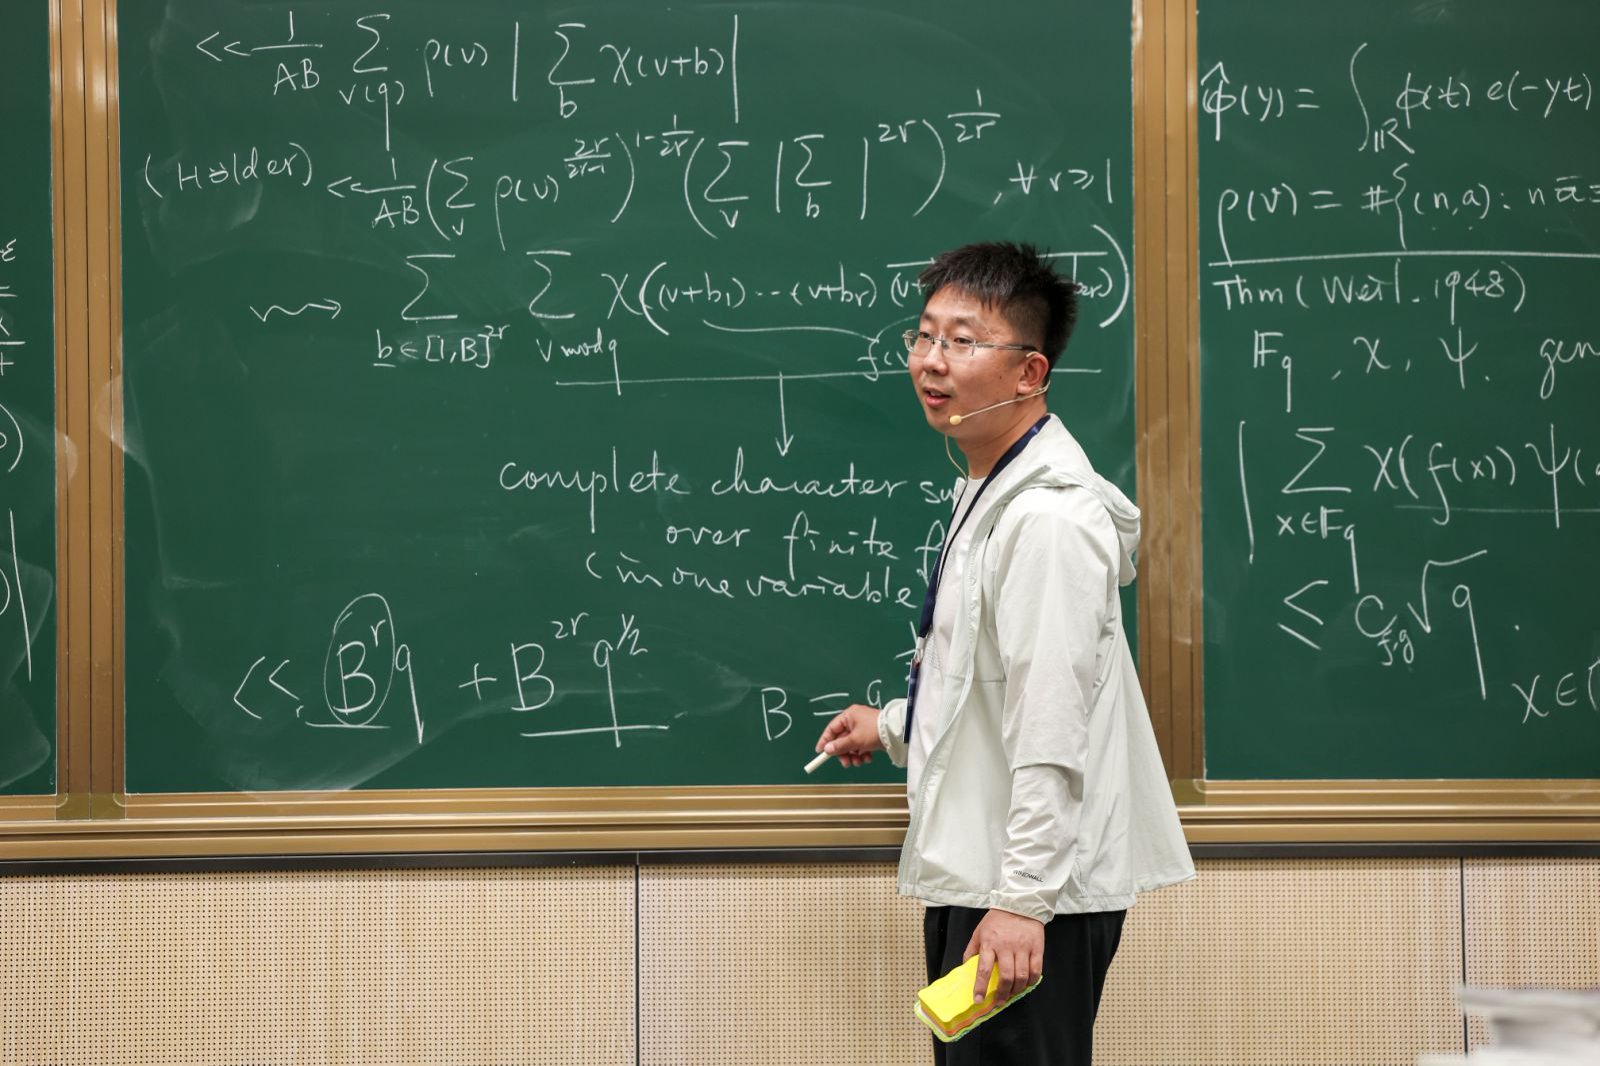 << 1/AB ∑_{v(q)} ρ(v) | ∑_b χ(v+b) |
(Hölder) << 1/AB ( ∑_v ρ(v)^{2r/2r-1} )^{1-1/2r} ( ∑_v | ∑_b |^{2r} )^{1/2r} , ∀ r ≥ 1
⇝ ∑_{b ∈ [1,B]^{2r}} ∑_{v mod q} χ((v+b_1)···(v+b_r)
complete character
over finite
(in one variable
<< B^r q + B^{2r} q^{1/2}
B = q
φ̂(y) = ∫_ℝ φ(t) e(-yt)
ρ(v) = #{(n,a): nā≡
Thm (Weil. 1948)
𝔽_q , χ, ψ.
| ∑_{x∈𝔽_q} χ(f(x)) ψ(
≤ C_{f,g} √q .
χ ∈
WINDWALL